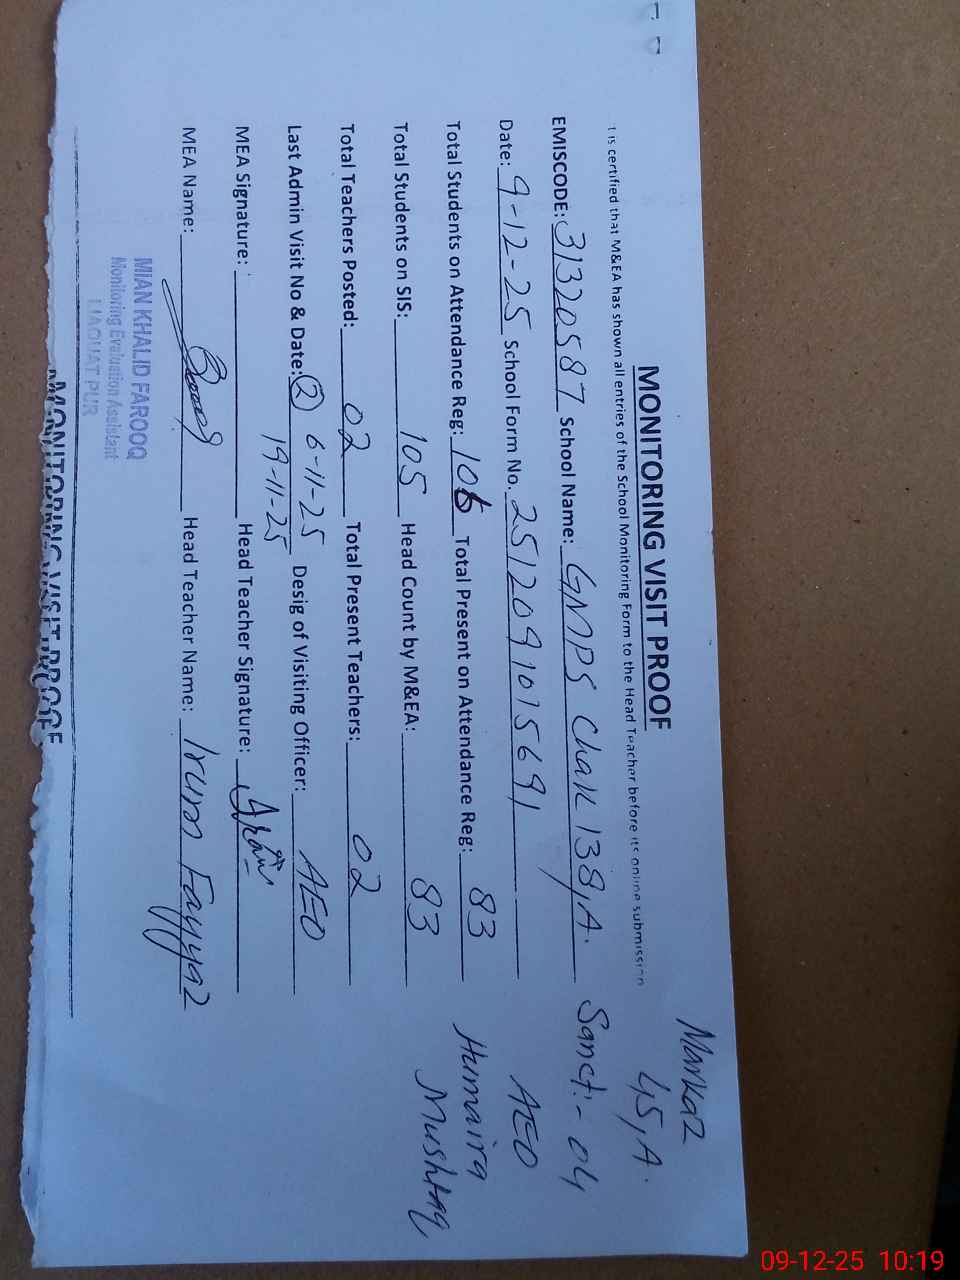 Markaz
45,A.
MONITORING VISIT PROOF
t is certified that M&EA has shown all entries of the School Monitoring Form to the Head Teacher before its online submission
EMISCODE: 31320587 School Name: GMPS Chak 138,A. Sanct:- 04
Date: 9-12-25 School Form No. 2512091015691 AEO
Total Students on Attendance Reg: 106 Total Present on Attendance Reg: 83 Humaira
Total Students on SIS: 105 Head Count by M&EA: 83 Mushtaq
Total Teachers Posted: 02 Total Present Teachers: 02
Last Admin Visit No & Date: (2) 6-11-25 Desig of Visiting Officer: AEO
19-11-25
MEA Signature: Head Teacher Signature:
MEA Name: Head Teacher Name: Irum Fayyaz
MIAN KHALID FAROOQ
Monitoring Evaluation Assistant
LIAQUAT PUR
MONITORING VISIT PROOF
09-12-25 10:19